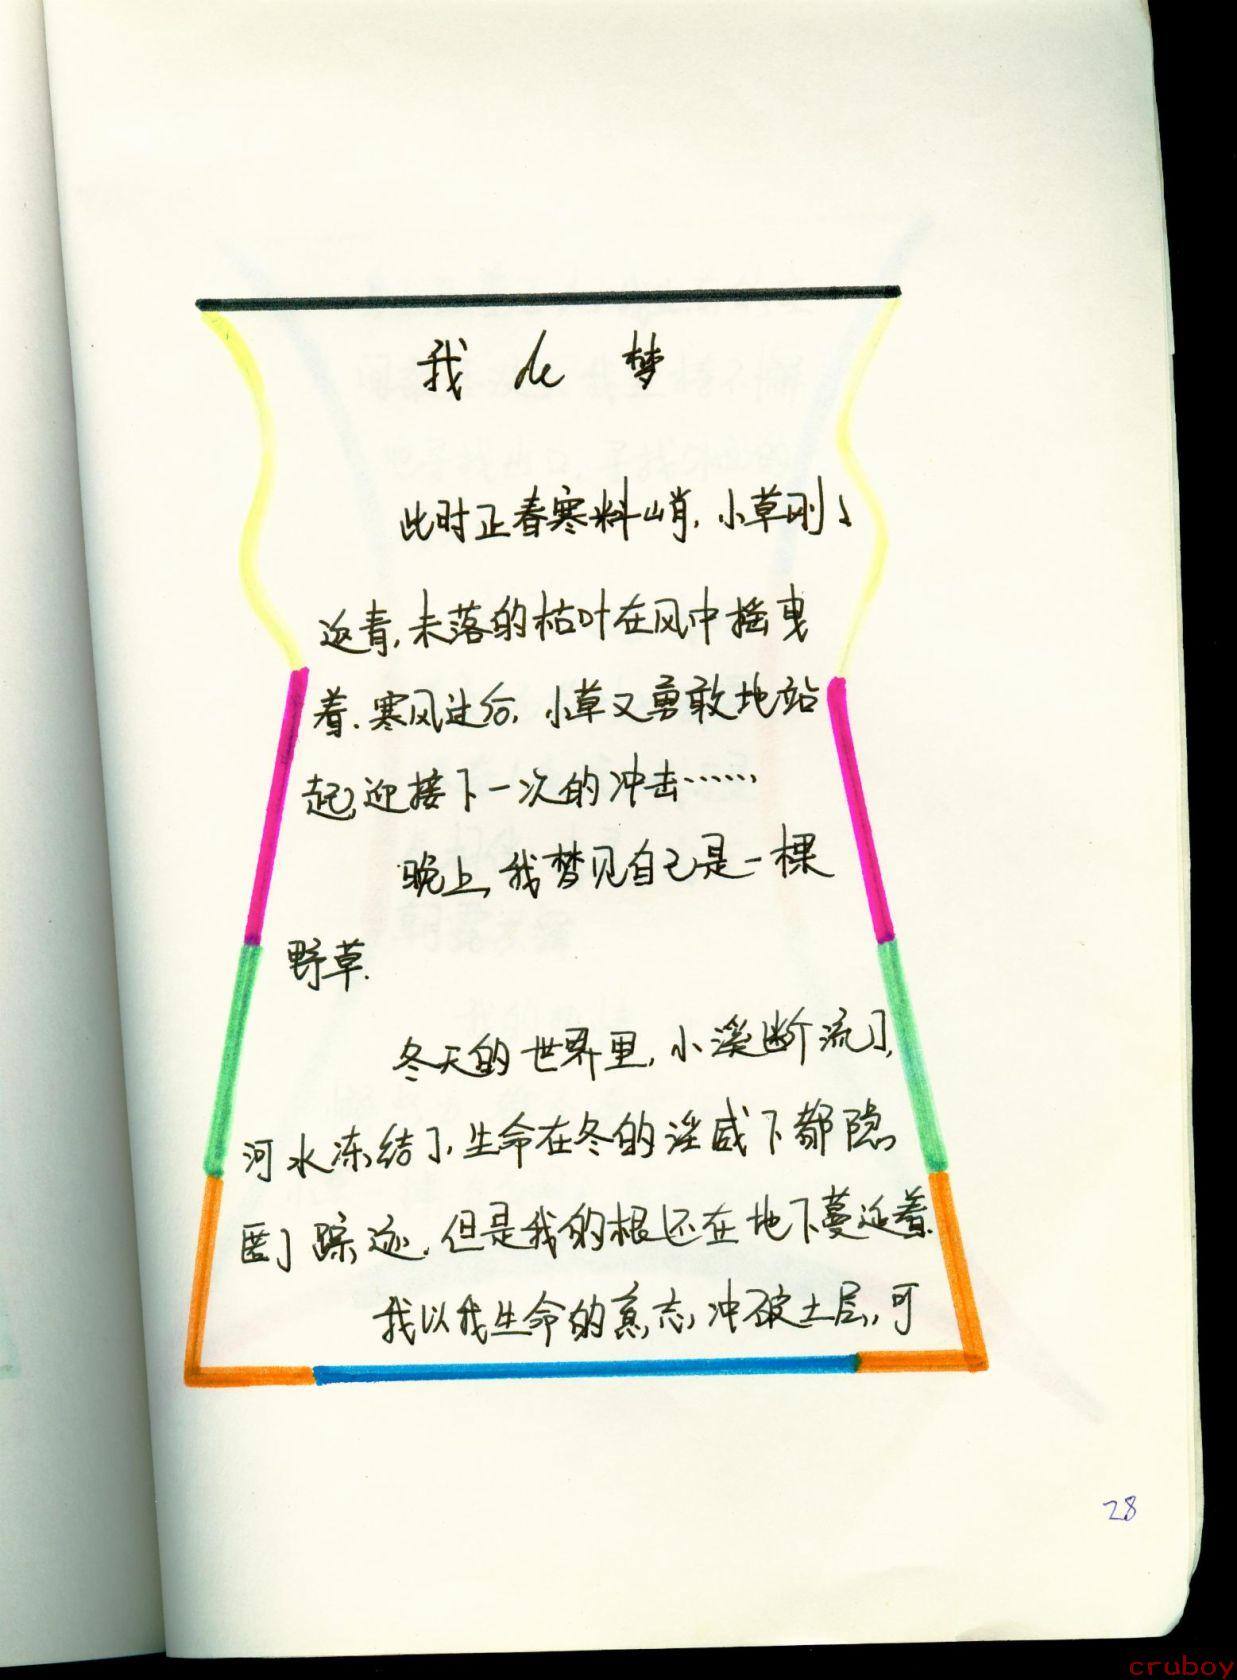 我de梦
此时正春寒料峭,小草刚刚
返青,未落的枯叶在风中摇曳
着.寒风过后,小草又勇敢地站
起,迎接下一次的冲击……
晚上,我梦见自己是一棵
野草.
冬天的世界里,小溪断流了,
河水冻结了,生命在冬的淫威下都隐
匿了踪迹,但是我的根还在地下蔓延着.
我以我生命的意志,冲破土层,可
28
cruboy